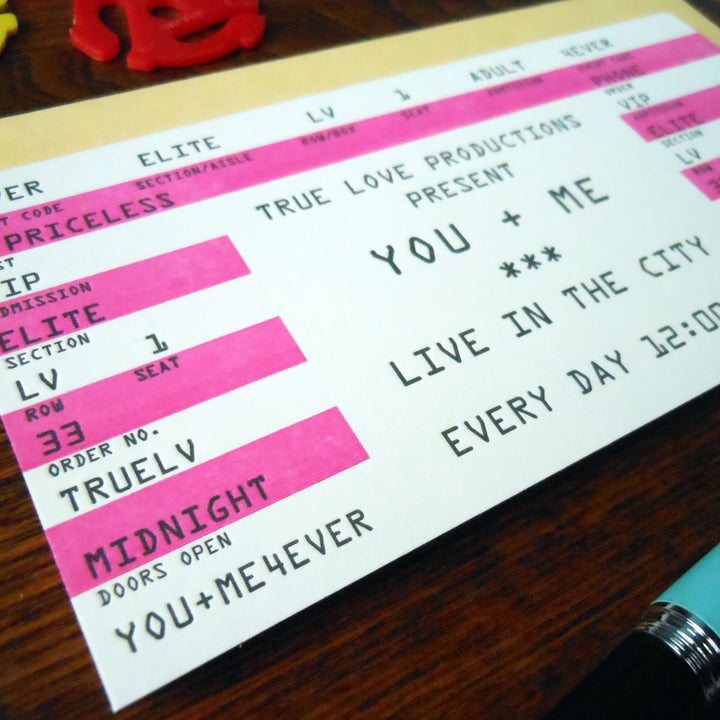 VER ELITE LV 1 ADULT 4EVER
T CODE SECTION/AISLE ROW/BOX SEAT ADMISSION EVENT CODE
PRICELESS
ST
VIP
ADMISSION
ELITE
SECTION
LV 1
ROW SEAT
33
ORDER NO.
TRUELV
MIDNIGHT
DOORS OPEN
YOU+ME4EVER
TRUE LOVE PRODUCTIONS
PRESENT
YOU + ME
***
LIVE IN THE CITY
EVERY DAY 12:00
PHONE
ORDER
VIP
ADMISSION
ELITE
SECTION
LV
ROW